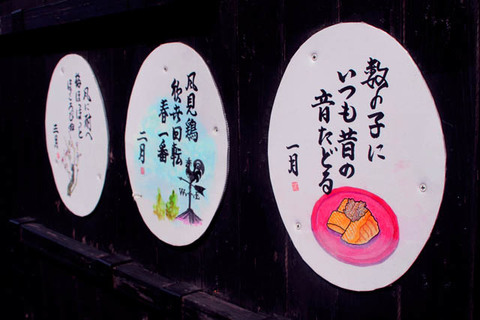 数の子に
いつも昔の
音たどる
一月
風見鶏
能舞回転
春一番
二月
W
E
風に耐へ
梅ほほっと
ほころびぬ
三月